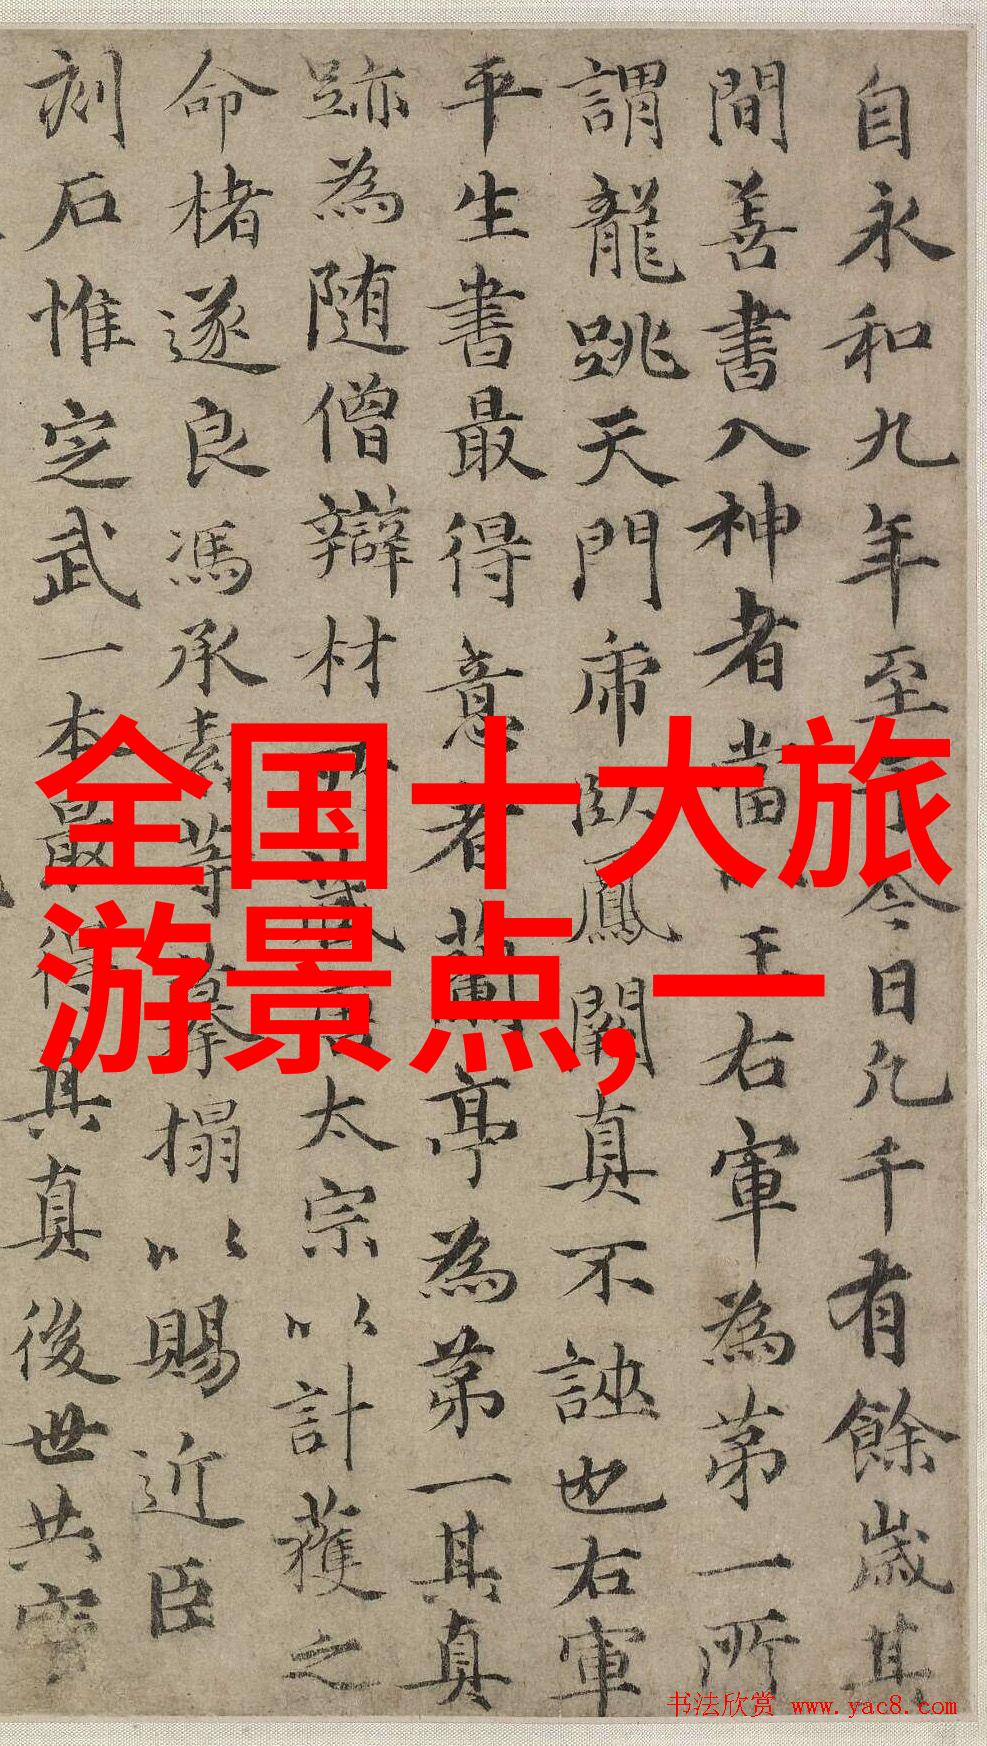 自永和九年至今日凡千有餘歲其
間善書入神者當以王右軍為第一所
謂龍跳天門虎臥鳳閣真不誣也右軍
平生書最得意者蘭亭為第一其真
跡為随僧辯材所藏太宗以計獲之
命楮遂良馮承素等摹搨以賜近臣
刻石惟定武一本最得其真後世共寶
全国十大旅
游景点,一
书法欣赏 www.yac8.com